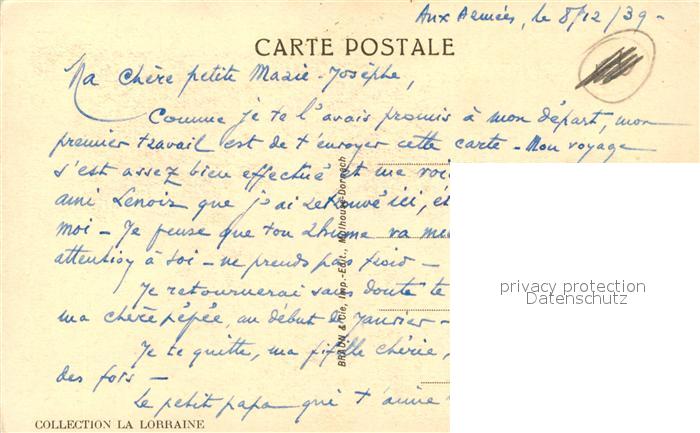 Aux Armées, le 8/12/39-
CARTE POSTALE
Ma chère petite Marie-Josèphe,
Comme je te l'avais promis à mon départ, mon
premier travail est de t'envoyer cette carte - Mon voyage
s'est assez bien effectué et me voi
ami Lenoir que j'ai retrouvé ici, ét
moi - Je pense que ton rhume va mi
attention à toi - ne prends pas froid -
Je retournerai sans doute te
ma chère pépée, au début de Janvier -
Je te quitte, ma fifille chérie,
des fois -
Le petit papa qui t'aime
BRAUN & Cie, Imp.-Edit., Mulhouse-Dornach
privacy protection
Datenschutz
COLLECTION LA LORRAINE